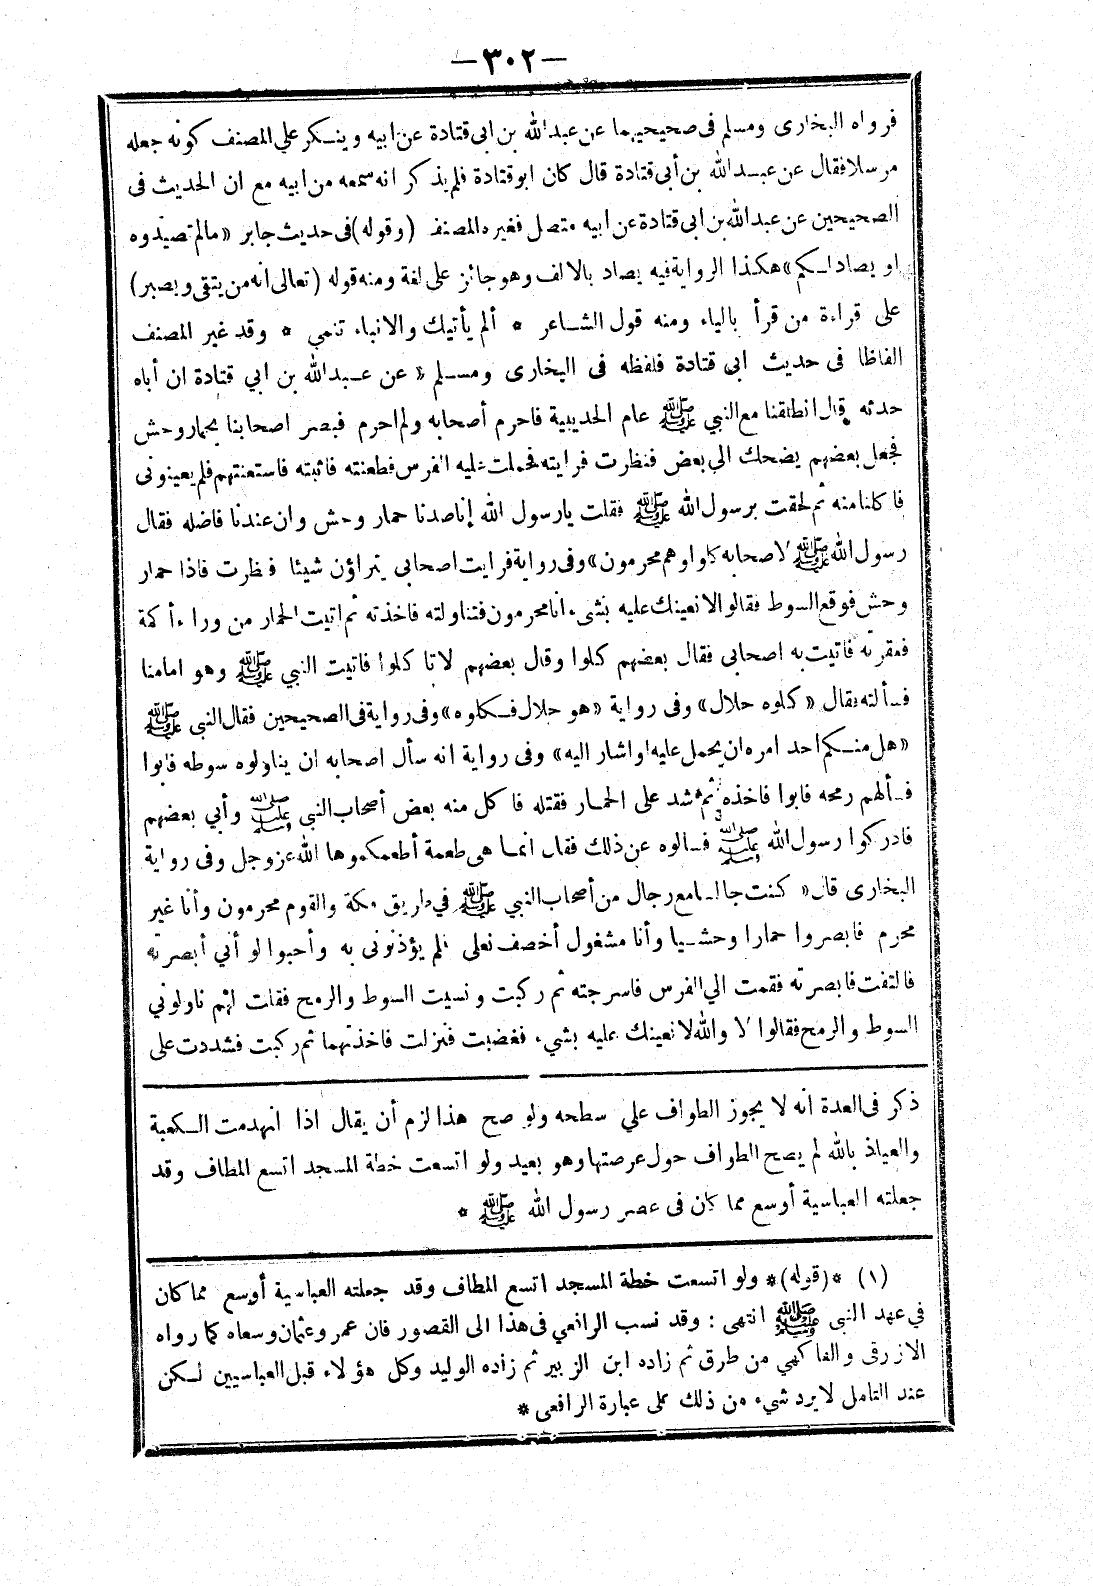 —٣٠٢—
فرواه البخارى ومسلم فى صحيحيهما عن عبدالله بن ابى قتادة عن ابيه وينكر علي المصنف كونه جعله
مرسلا فقال عن عبدالله بن أبى قتادة قال كان ابو قتادة فلم يذكر انه سمعه من ابيه مع ان الحديث فى
الصحيحين عن عبدالله بن ابى قتادة عن ابيه متصل فغيره المصنف (وقوله) فى حديث جابر «مالم تصيدوه
او يصاد لكم» هكذا الرواية فيه يصاد بالالف وهو جائز على لغة ومنه قوله (تعالى انه من يتقى ويصبر)
على قراءة من قرأ بالياء ومنه قول الشاعر * ألم يأتيك والانباء تنمي * وقد غير المصنف
الفاظا فى حديث ابى قتادة فلفظه فى البخارى ومسلم «عن عبدالله بن ابي قتادة ان أباه
حدثه قال انطلقنا مع النبي ﷺ عام الحديبية فاحرم أصحابه ولم احرم فبصر اصحابنا بحمار وحش
فجعل بعضهم يضحك الي بعض فنظرت فرايته فحملت عليه الفرس فطعنته فاثبته فاستعنتهم فلم يعينونى
فاكلنا منه ثم لحقت برسول الله ﷺ فقلت يارسول الله إنا صدنا حمار وحش وان عندنا فاضله فقال
رسول الله ﷺ لاصحابه كلوا وهم محرمون» وفى رواية فرايت اصحابى يتراؤن شيئا فنظرت فاذا حمار
وحش فوقع السوط فقالوا لا نعينك عليه بشىء انا محرمون فتناولته فاخذته ثم اتيت الحمار من وراء أكمة
فعقرته فاتيت به اصحابى فقال بعضهم كلوا وقال بعضهم لا تاكلوا فاتيت النبي ﷺ وهو امامنا
فسألته فقال «كلوه حلال» وفى رواية «هو حلال فكلوه» وفى رواية فى الصحيحين فقال النبى ﷺ
«هل منكم احد امره ان يحمل عليه او اشار اليه» وفى رواية انه سأل اصحابه ان يناولوه سوطه فابوا
فسألهم رمحه فابوا فاخذه ثم شد على الحمار فقتله فاكل منه بعض أصحاب النبى ﷺ وأبي بعضهم
فادركوا رسول الله ﷺ فسالوه عن ذلك فقال انما هى طعمة أطعمكموها الله عز وجل وفى رواية
البخارى قال «كنت جالسا مع رجال من أصحاب النبي ﷺ في طريق مكة والقوم محرمون وأنا غير
محرم فابصروا حمارا وحشيا وأنا مشغول أخصف نعلى فلم يؤذنونى به وأحبوا لو أني أبصرته
فالتفت فابصرته فقمت الي الفرس فاسرجته ثم ركبت ونسيت السوط والرمح فقلت لهم ناولوني
السوط والرمح فقالوا لا والله لا نعينك عليه بشيء فغضبت فنزلت فاخذتهما ثم ركبت فشددت على
ذكر فى العدة انه لا يجوز الطواف علي سطحه ولو صح هذا لزم أن يقال اذا انهدمت الكعبة
والعياذ بالله لم يصح الطواف حول عرصتها وهو بعيد ولو اتسعت خطة المسجد اتسع المطاف وقد
جعلته العباسية أوسع مما كان فى عصر رسول الله ﷺ *
(١) *(قوله)* ولو اتسعت خطة المسجد اتسع المطاف وقد جعلته العباسية أوسع مما كان
في عهد النبى ﷺ انتهى : وقد نسب الرافعي فى هذا الى القصور فان عمر وعثمان وسعاه كما رواه
الازرقى والفاكهي من طرق ثم زاده ابن الزبير ثم زاده الوليد وكل هؤلاء قبل العباسيين لكن
عند التامل لا يرد شيء من ذلك على عبارة الرافعى *